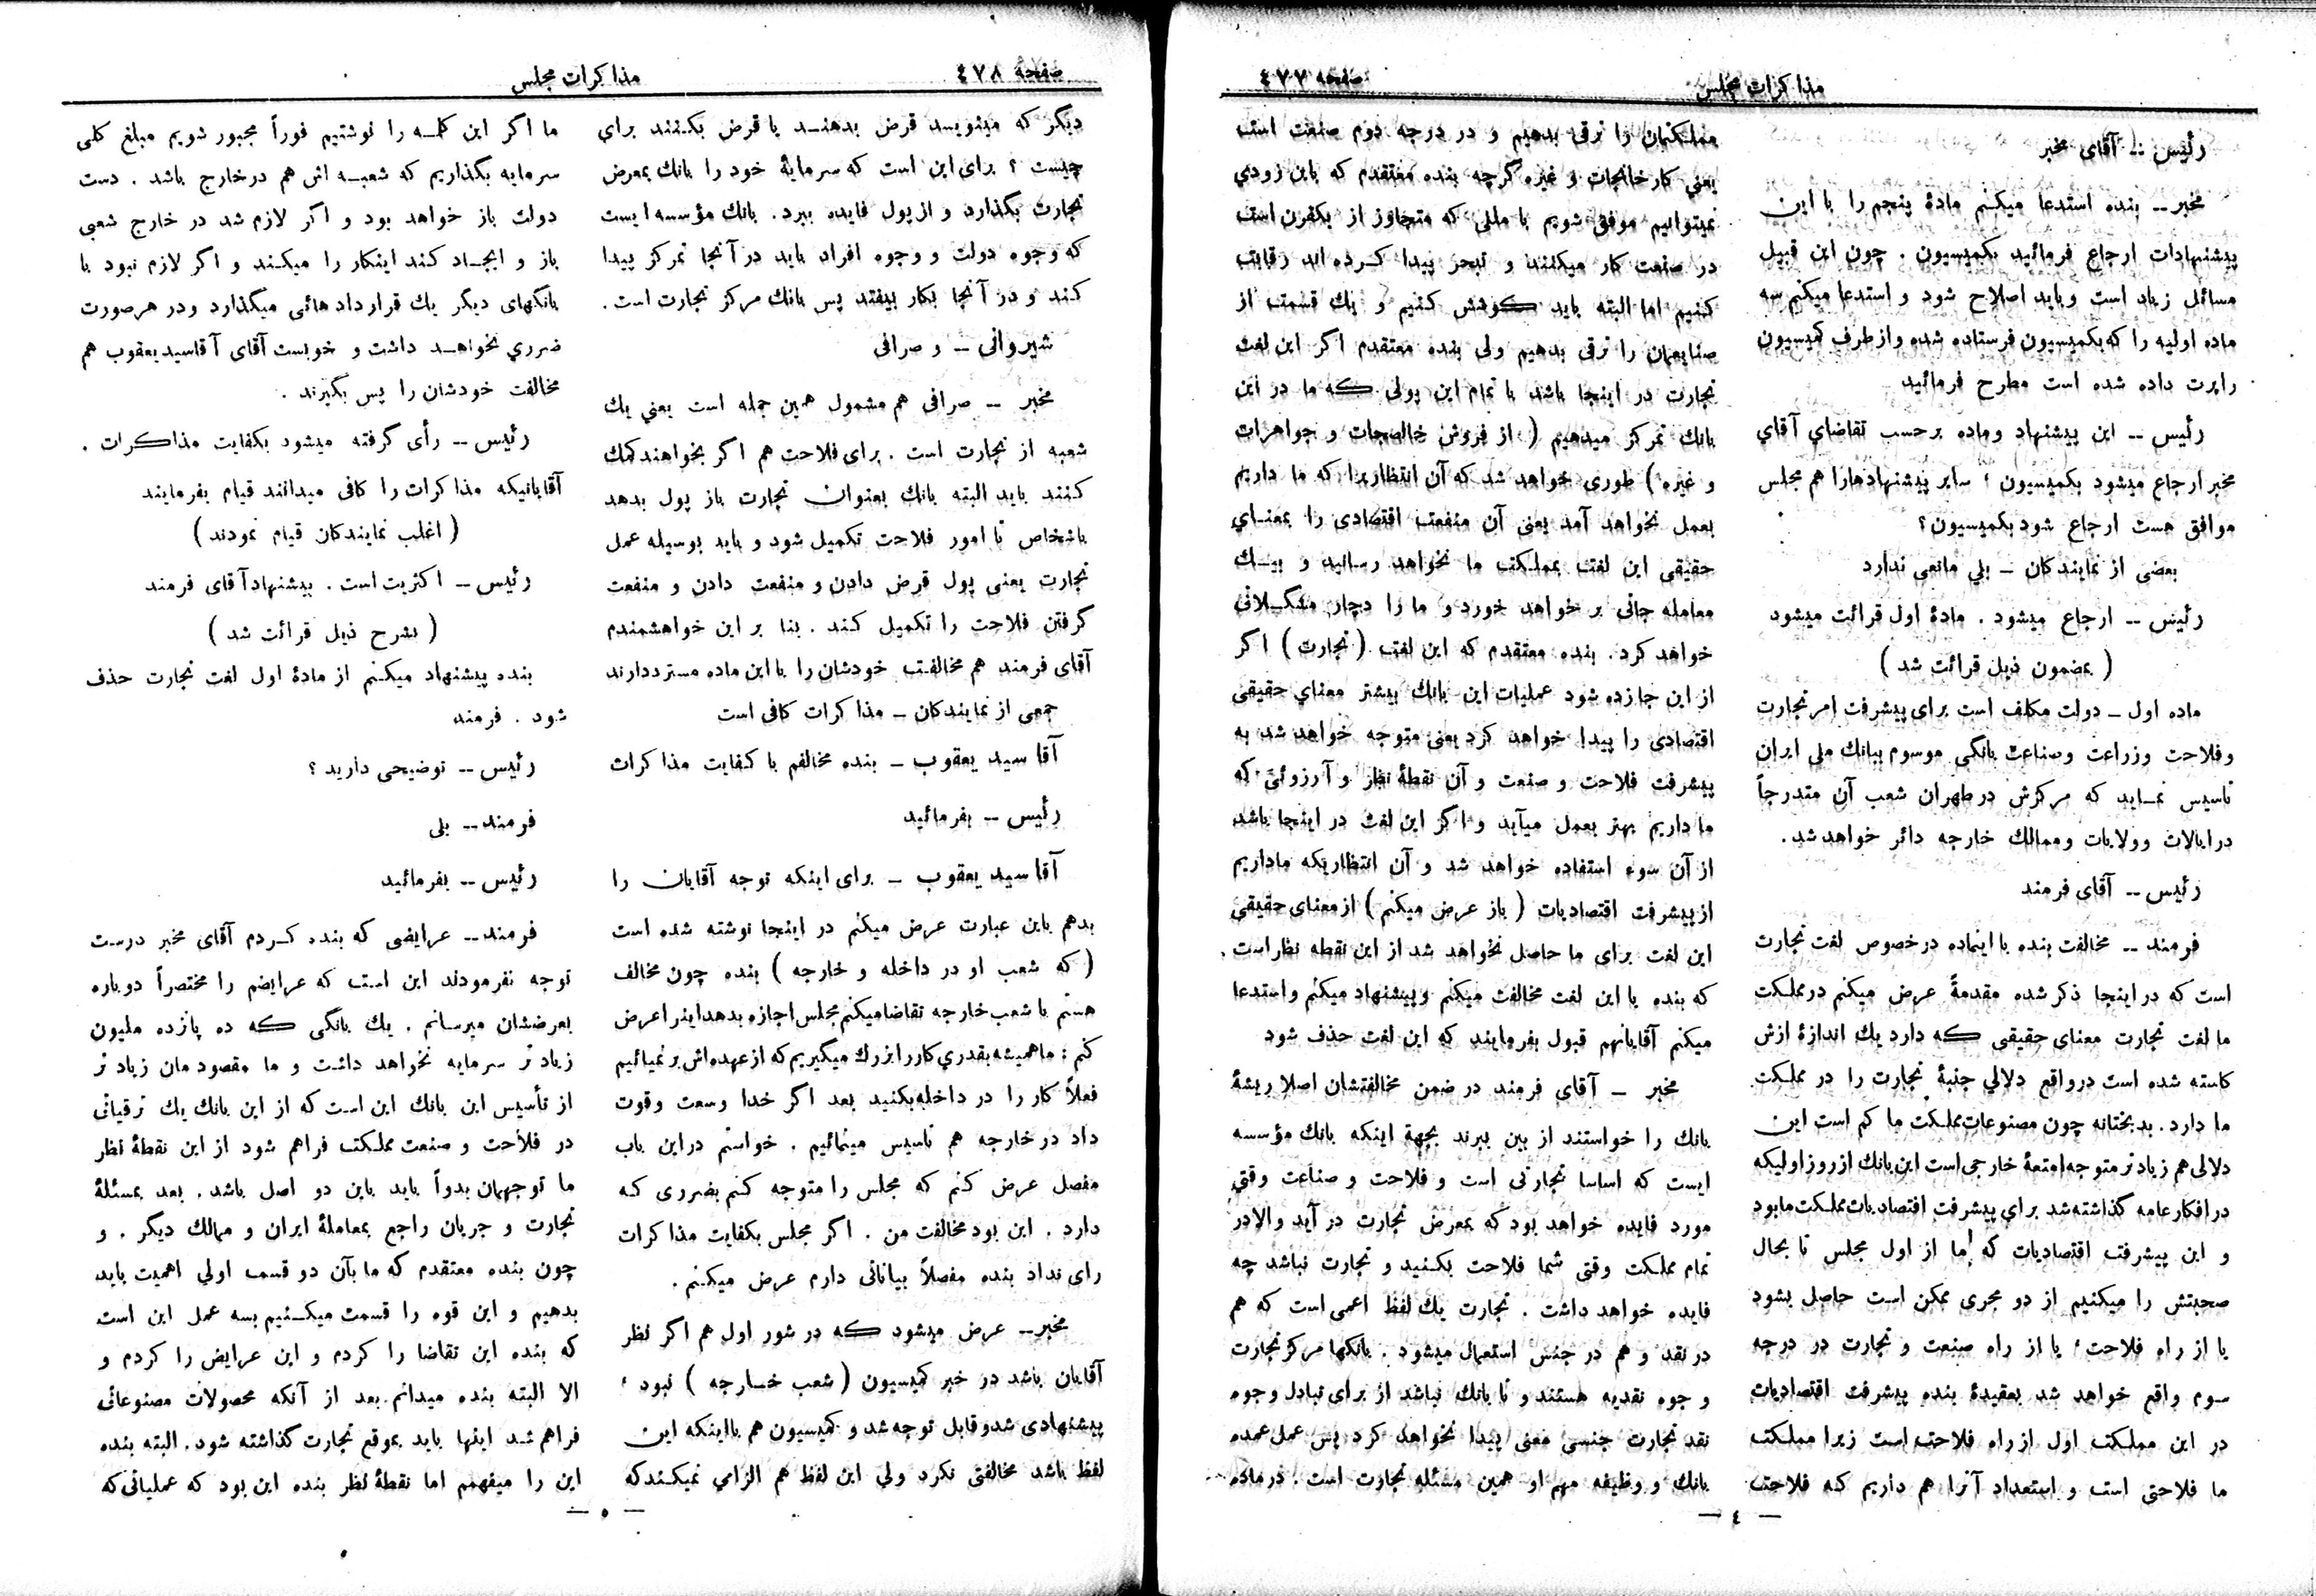 مذاکرات مجلس
صفحه ٤٧٧
رئیس -- آقای مخبر
مخبر -- بنده استدعا میکنم مادهٔ پنجم را با این
پیشنهادات ارجاع فرمائید بکمیسیون . چون این قبیل
مسائل زیاد است و باید اصلاح شود و استدعا میکنم سه
ماده اولیه را که بکمیسیون فرستاده شده و از طرف کمیسیون
راپرت داده شده است مطرح فرمائید
رئیس -- این پیشنهاد و ماده بر حسب تقاضاي آقاي
مخبر ارجاع میشود بکمیسیون ، سایر پیشنهادها را هم مجلس
موافق هست ارجاع شود بکمیسیون ؟
بعضی از نمایندکان -- بلي مانعی ندارد
رئیس -- ارجاع میشود . مادهٔ اول قرائت میشود
( بمضمون ذیل قرائت شد )
ماده اول -- دولت مکلف است برای پیشرفت امر تجارت
و فلاحت و زراعت و صناعت بانکی موسوم ببانك ملي ایران
تاسیس نماید که مرکزش در طهران شعب آن متدرجاً
در ایالات و ولایات و ممالك خارجه دائر خواهد شد .
رئیس -- آقای فرمند
فرمند -- مخالفت بنده با اینماده در خصوص لغت تجارت
است که در اینجا ذکر شده مقدمةً عرض میکنم در مملکت
ما لغت تجارت معنای حقیقی که دارد یك اندازهٔ ازش
کاسته شده است در واقع دلالي جنبهٔ تجارت را در مملکت
ما دارد . بدبختانه چون مصنوعات مملکت ما کم است این
دلالی هم زیادتر متوجه امتعهٔ خارجی است این بانك از روز اولیکه
در افکار عامه گذاشته شد برای پیشرفت اقتصادیات مملکت ما بود
و این پیشرفت اقتصادیات که ما از اول مجلس تا بحال
صحبتش را میکنیم از دو مجری ممکن است حاصل بشود
یا از راه فلاحت ، یا از راه صنعت و تجارت در درجه
سوم واقع خواهد شد بعقیدهٔ بنده پیشرفت اقتصادیات
در این مملکت اول از راه فلاحت است زیرا مملکت
ما فلاحتی است و استعداد آنرا هم داریم که فلاحت
مملکتمان را ترقی بدهیم و در درجه دوم صنعت است
یعني کارخانجات و غیره گرچه بنده معتقدم که باین زودي
نمیتوانیم موفق شویم با مللی که متجاوز از یکقرن است
در صنعت کار میکنند و تبحر پیدا کرده اند رقابت
کنیم اما البته باید کوشش کنیم و یك قسمت از
صنایعمان را ترقی بدهیم ولی بنده معتقدم اگر این لغت
تجارت در اینجا باشد با تمام این پولی که ما در این
بانك تمرکز میدهیم ( از فروش خالصجات و جواهرات
و غیره ) طوری خواهد شد که آن انتظاریرا که ما داریم
بعمل نخواهد آمد یعنی آن منفعت اقتصادی را بمعنای
حقیقی این لغت بمملکت ما نخواهد رسانید و بیك
معامله جاتی بر خواهد خورد و ما را دچار مشکلاتی
خواهد کرد . بنده معتقدم که این لغت ( تجارت ) اگر
از این جا زده شود عملیات این بانك بیشتر معنای حقیقی
اقتصادی را پیدا خواهد کرد یعنی متوجه خواهد شد به
پیشرفت فلاحت و صنعت و آن نقطهٔ نظر و آرزوئی که
ما داریم بهتر بعمل میآید و اگر این لغت در اینجا باشد
از آن سوء استفاده خواهد شد و آن انتظاریکه ما داریم
از پیشرفت اقتصادیات ( باز عرض میکنم ) از معنای حقیقی
این لغت برای ما حاصل نخواهد شد از این نقطه نظر است
که بنده با این لغت مخالفت میکنم و پیشنهاد میکنم و استدعا
میکنم آقایانهم قبول بفرمایند که این لغت حذف شود
مخبر -- آقای فرمند در ضمن مخالفتشان اصلا ریشهٔ
بانك را خواستند از بین ببرند بجهة اینکه بانك مؤسسه
ایست که اساسا تجارتی است و فلاحت و صناعت وقتي
مورد فایده خواهد بود که بمعرض تجارت در آید والا در
تمام مملکت وقتی شما فلاحت بکنید و تجارت نباشد چه
فایده خواهد داشت . تجارت یك لفظ اعمی است که هم
در نقد و هم در جنس استعمال میشود . بانکها مرکز تجارت
و جوه نقدیه هستند و تا بانك نباشد از برای تبادل وجوه
نقد تجارت جنسی معنی پیدا نخواهد کرد پس عمل عمده
بانك و وظیفه مهم او همین مسئله تجارت است . در ماده
— ٤ —
صفحه ٤٧٨
مذاکرات مجلس
دیگر که مینویسد قرض بدهند یا قرض بکنند برای
چیست ؟ برای این است که سرمایهٔ خود را بانك بمعرض
تجارت بگذارد و از پول فایده ببرد . بانك مؤسسه ایست
که وجوه دولت و وجوه افراد باید در آنجا تمرکز پیدا
کند و در آنجا بکار بیفتد پس بانك مرکز تجارت است .
شیروانی -- و صرافی
مخبر -- صرافی هم مشمول همین جمله است یعني یك
شعبه از تجارت است . برای فلاحت هم اگر بخواهند کمك
کنند باید البته بانك بعنوان تجارت باز پول بدهد
باشخاص تا امور فلاحت تکمیل شود و باید بوسیله عمل
تجارت یعنی پول قرض دادن و منفعت دادن و منفعت
گرفتن فلاحت را تکمیل کند . بنا بر این خواهشمندم
آقای فرمند هم مخالفت خودشان را با این ماده مسترد دارند
جمعی از نمایندکان -- مذاکرات کافی است
آقا سید یعقوب -- بنده مخالفم با کفایت مذاکرات
رئیس -- بفرمائید
آقا سید یعقوب -- برای اینکه توجه آقایان را
بدهم باین عبارت عرض میکنم در اینجا نوشته شده است
( که شعب او در داخله و خارجه ) بنده چون مخالف
هستم با شعب خارجه تقاضا میکنم مجلس اجازه بدهد اینرا عرض
کنم : ما همیشه بقدري کار را بزرك میگیریم که از عهده اش بر نمیائیم
فعلاً کار را در داخله بکنید بعد اگر خدا وسعت و قوت
داد در خارجه هم تاسیس مینمائیم . خواستم در این باب
مفصل عرض کنم که مجلس را متوجه کنم بضرری که
دارد . این بود مخالفت من . اگر مجلس بکفایت مذاکرات
رای نداد بنده مفصلاً بیاناتی دارم عرض میکنم .
مخبر -- عرض میشود که در شور اول هم اگر نظر
آقایان باشد در خبر کمیسیون ( شعب خارجه ) نبود ،
پیشنهادی شد و قابل توجه شد و کمیسیون هم با اینکه این
لفظ باشد مخالفتی نکرد ولي این لفظ هم الزامي نمیکند که
ما اگر این کلمه را نوشتیم فوراً مجبور شویم مبلغ کلی
سرمایه بگذاریم که شعبه اش هم در خارج باشد . دست
دولت باز خواهد بود و اگر لازم شد در خارج شعبی
باز و ایجاد کند اینکار را میکند و اگر لازم نبود با
بانگهای دیگر یك قرار داد هائی میگذارد و در هر صورت
ضرري نخواهد داشت و خوبست آقای آقاسید یعقوب هم
مخالفت خودشان را پس بگیرند .
رئیس -- رأی گرفته میشود بکفایت مذاکرات .
آقایانیکه مذاکرات را کافی میدانند قیام بفرمایند
( اغلب نمایندکان قیام نمودند )
رئیس -- اکثریت است . پیشنهاد آقای فرمند
( بشرح ذیل قرائت شد )
بنده پیشنهاد میکنم از مادهٔ اول لغت تجارت حذف
شود . فرمند
رئیس -- توضیحی دارید ؟
فرمند -- بلی
رئیس -- بفرمائید
فرمند -- عرایضی که بنده کردم آقای مخبر درست
توجه نفرمودند این است که عرایضم را مختصراً دوباره
بعرضشان میرسانم . یك بانگی که ده پانزده ملیون
زیاد تر سرمایه نخواهد داشت و ما مقصودمان زیاد تر
از تأسیس این بانك این است که از این بانك یك ترقیاتی
در فلاحت و صنعت مملکت فراهم شود از این نقطهٔ نظر
ما توجهمان بدواً باید باین دو اصل باشد . بعد بمسئلهٔ
تجارت و جریان راجع بمعاملهٔ ایران و ممالك دیگر . و
چون بنده معتقدم که ما بآن دو قسمت اولي اهمیت باید
بدهیم و این قوه را قسمت میکنیم بسه عمل این است
که بنده این تقاضا را کردم و این عرایض را کردم و
الا البته بنده میدانم بعد از آنکه محصولات مصنوعاتی
فراهم شد اینها باید بموقع تجارت گذاشته شود . البته بنده
این را میفهمم اما نقطهٔ نظر بنده این بود که عملیاتی که
— ٥ —